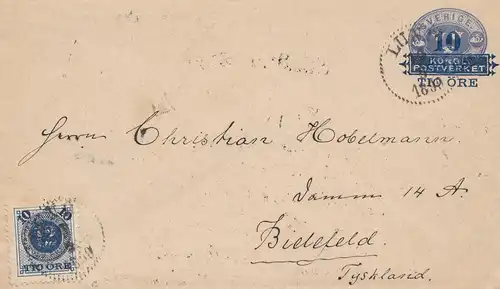 SVERIGE
10
KONGL.
POSTVERKET
TIO ÖRE
Herrn Christian Hobelmann.
Damm 14 A.
Bielefeld.
Tyskland.
10 10
12
TIO ÖRE